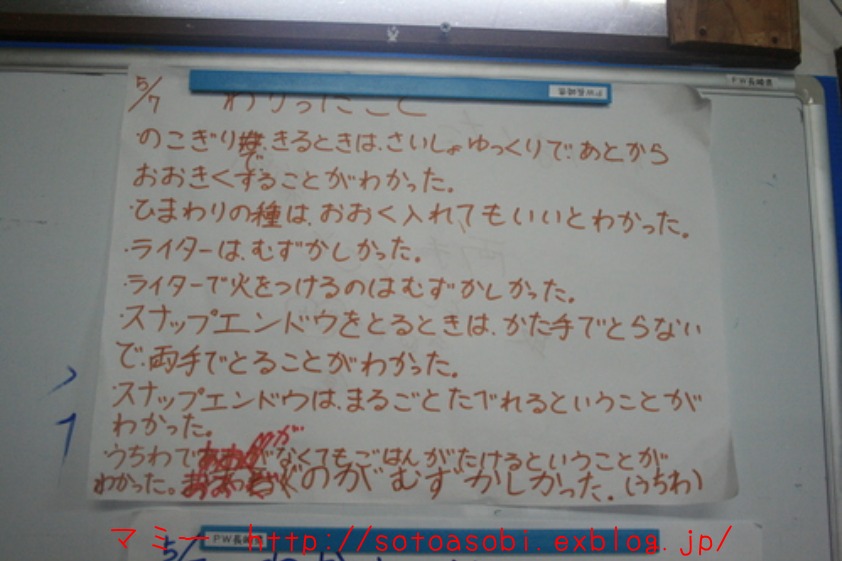 PW長崎県
PW長崎県
5/7 わかったこと
・のこぎりで、きるときは、さいしょゆっくりで、あとから
おおきくすることがわかった。
・ひまわりの種は、おおく入れてもいいとわかった。
・ライターは、むずかしかった。
・ライターで火をつけるのはむずかしかった。
・スナップエンドウをとるときは、かた手でとらない
で、両手でとることがわかった。
・スナップエンドウは、まるごとたべれるということが
わかった。
・うちわで がなくてもごはんがたけるということが
わかった。 のがむずかしかった。(うちわ)
PW長崎県
5/7
マミー http://sotoasobi.exblog.jp/